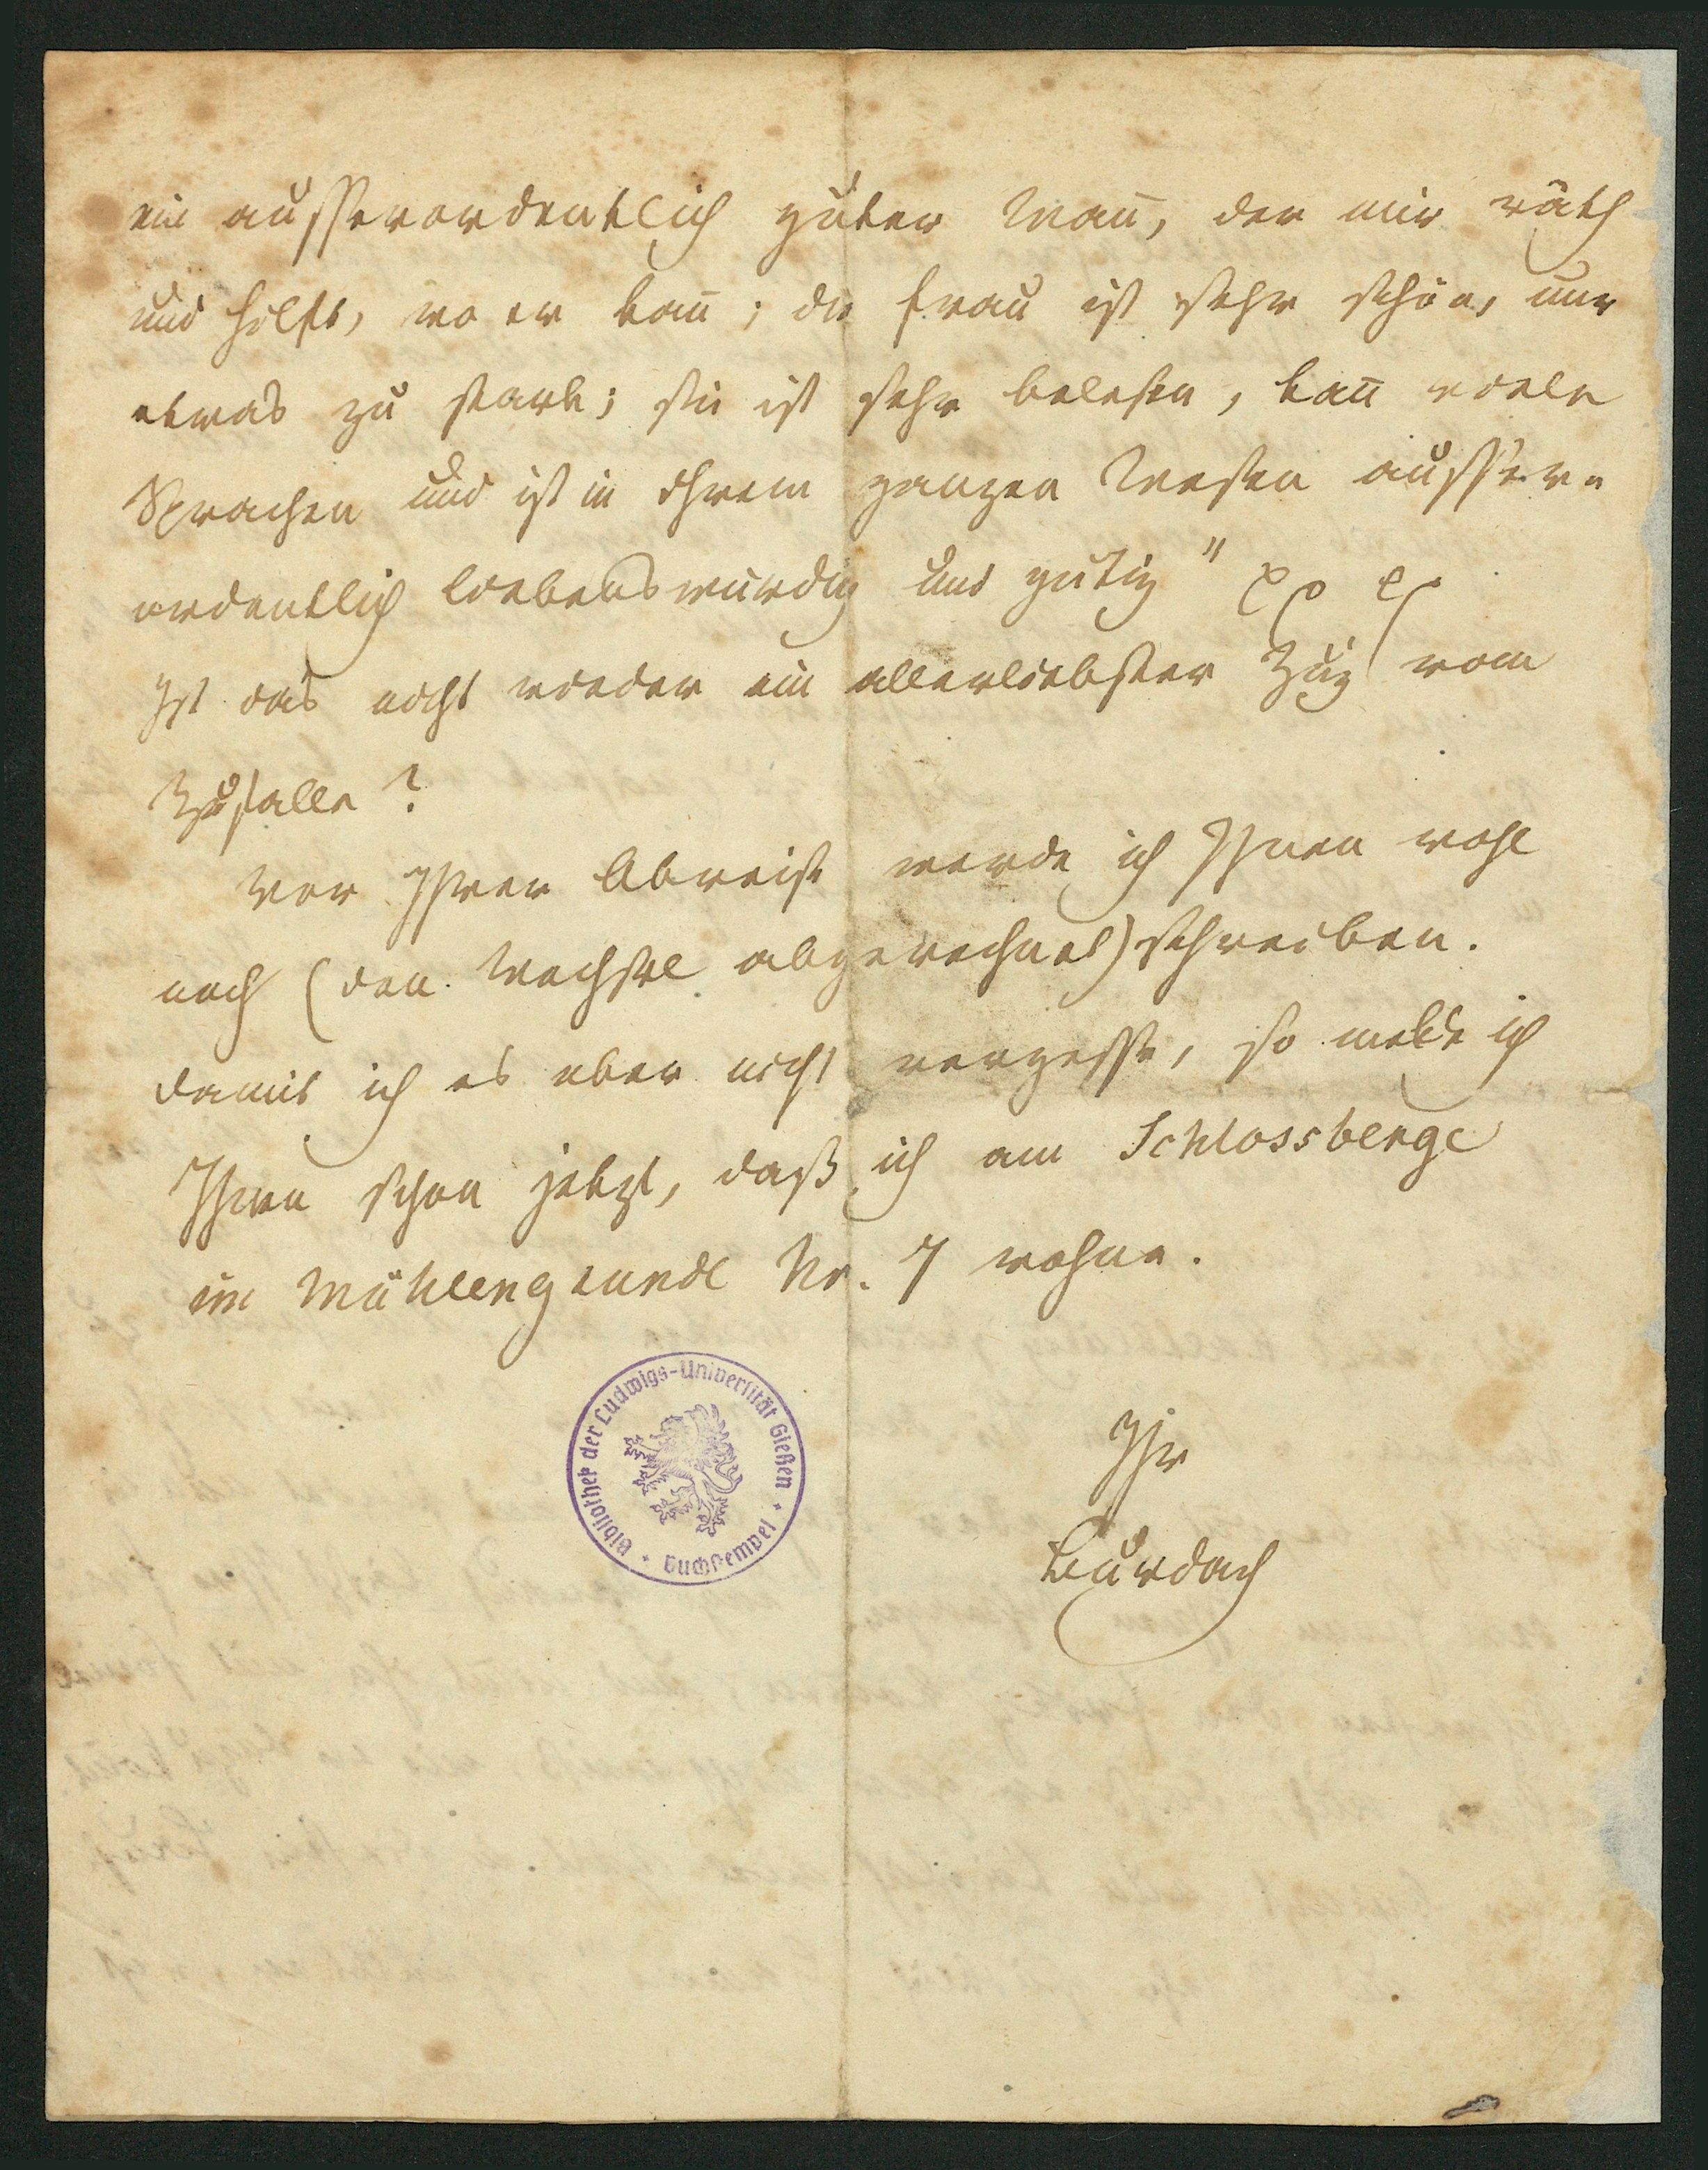 ein ausserordentlich guter Mañ, der mir räth
und hilft, wo er kañ; die Frau ist sehr schön, nur
etwas zu stark; sie ist sehr belesen, kañ viele
Sprachen und ist in ihrem ganzen Wesen ausser-
ordentlich liebenswürdig und gütig"
Ist das nicht wieder ein allerliebster Zug vom
Zufalle?
Vor Ihrer Abreise werde ich Ihnen wohl
noch (den Wechsel abgerechnet) schreiben.
damit ich es aber nicht vergesse, so melde ich
Ihnen schon jetzt, daß ich am Schlossberge
im Mühlengrunde Nr. 7 wohne.
Ihr
Burdach
Bibliothek der Ludwigs-Universität Gießen
Buchstempel